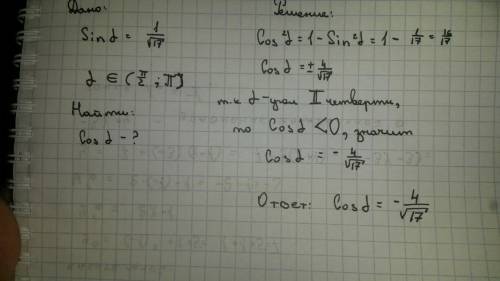 Дано:
Sin α = 1/√17
α ∈ (π/2; π)
Найти:
Cos α - ?
Решение:
Cos²α = 1 - Sin²α = 1 - 1/17 = 16/17
Cos α = ± 4/√17
т.к α - угол II четверти,
то Cos α < 0, значит
Cos α = - 4/√17
Ответ: Cos α = - 4/√17